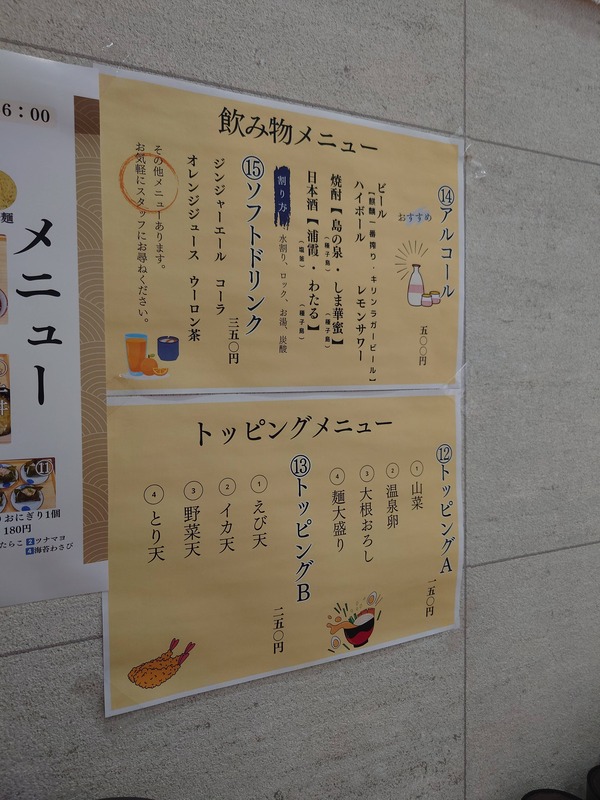 飲み物メニュー
⑭アルコール
おすすめ
五〇〇円
ビール
【麒麟一番搾り・キリンラガービール】
ハイボール レモンサワー
焼酎【島の泉・しま華蜜】
(種子島) (種子島)
日本酒【浦霞・わたる】
(塩釜) (種子島)
割り方
水割り、ロック、お湯、炭酸
⑮ソフトドリンク
三五〇円
ジンジャーエール コーラ
オレンジジュース ウーロン茶
その他メニューあります。
お気軽にスタッフにお尋ねください。
トッピングメニュー
⑫トッピングA
一五〇円
①山菜
②温泉卵
③大根おろし
④麺大盛り
⑬トッピングB
二五〇円
①えび天
②イカ天
③野菜天
④とり天
6:00
麺
メニュー
丼
⑪
おにぎり1個
180円
たらこ 2ツナマヨ
4海苔わさび